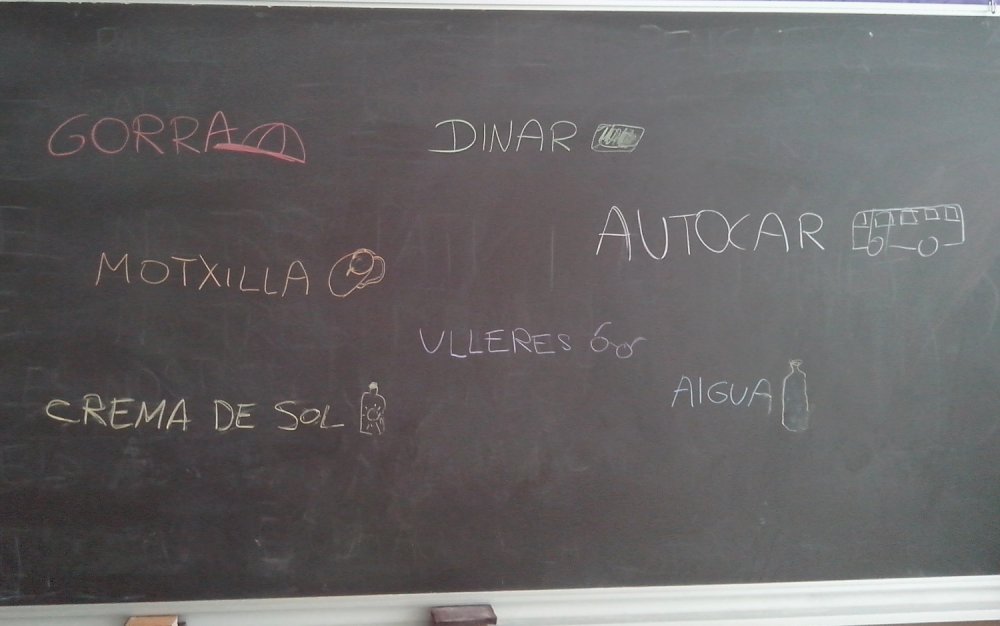 GORRA
DINAR
AUTOCAR
MOTXILLA
ULLERES
AIGUA
CREMA DE SOL